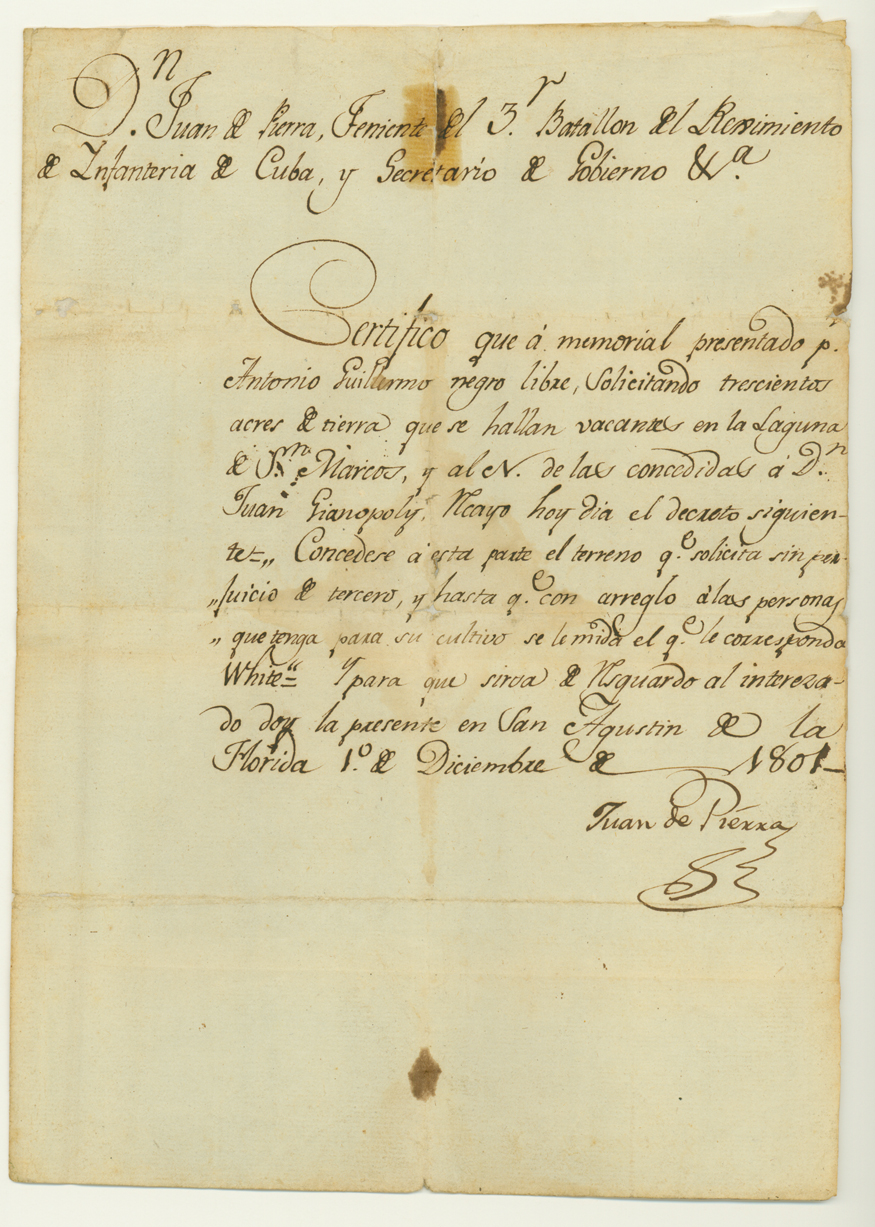 Dn. Juan de Pierra, Teniente del 3.r Batallon del Reximiento
de Infanteria de Cuba, y Secretario de Gobierno &a.
Certifico que á memorial presentado p.
Antonio Guillermo negro libre, Solicitando trescientos
acres de tierra que se hallan vacantes en la Laguna
de Sn. Marcos, y al N. de las concedidas á Dn.
Juan Gianopoly, Recayo hoy dia el decreto siguien-
te=,, Concedese á esta parte el terreno qe. solicita sin per-
,,juicio de tercero, y hasta qe. con arreglo álas personas
,, que tenga para su cultivo se le mida el qe. le corresponda
White=" Y para que sirva de Resguardo al intereza-
do doy la presente en San Agustin de la
Florida 1.o de Diciembre de 1801-
Juan de Pierra